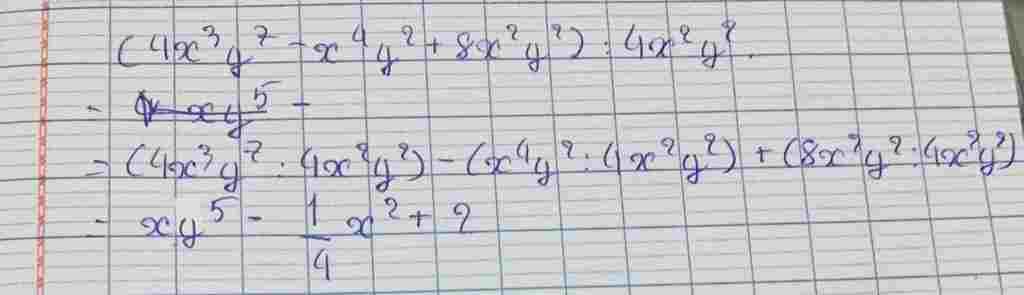 (4x³y⁷ - x⁴y² + 8x²y²) : 4x²y².
= xy⁵ -
= (4x³y⁷ : 4x²y²) - (x⁴y² : 4x²y²) + (8x²y² : 4x²y²)
= xy⁵ - 1/4 x² + 2